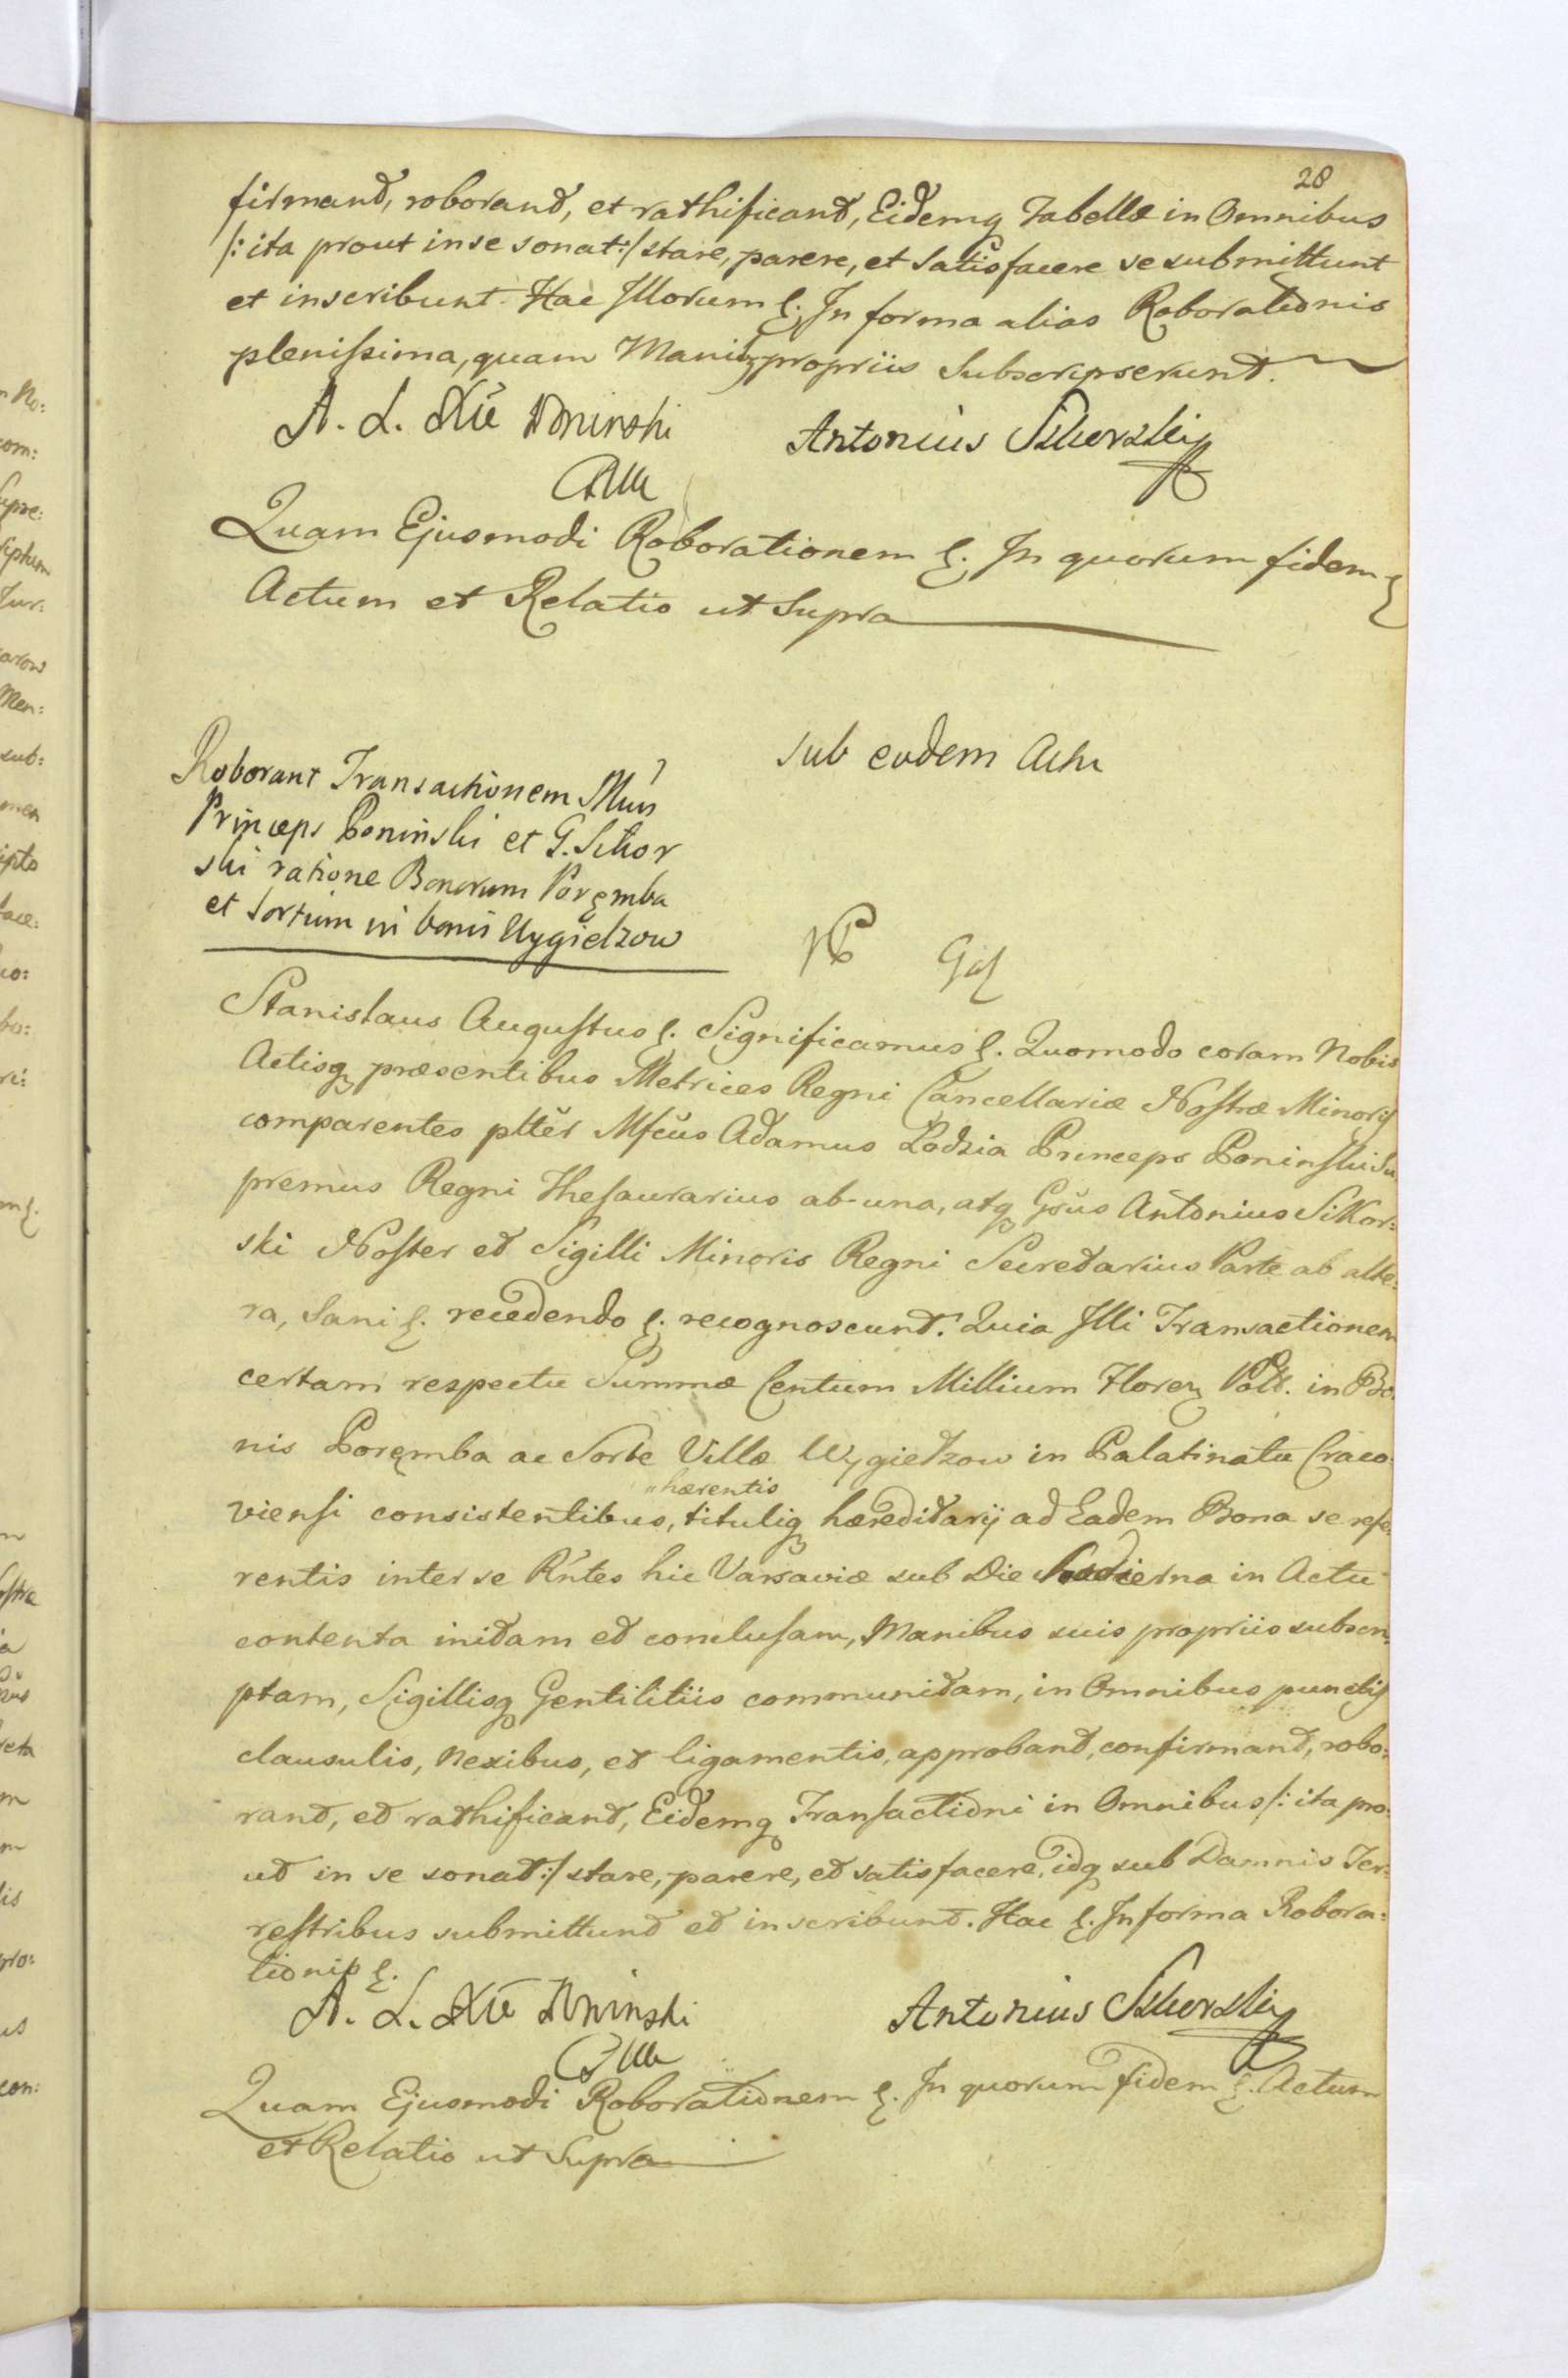 28
firmant, roborant, et rathificant, Eidemq Tabellæ in Omnibus
/: ita prout in se sonat :/ stare, parere, et Satisfacere se submittunt
et inscribunt. Hac Illorum &. In forma alias Roborationis
plenissima, quam Manibq propriis Subscripserunt.
A. L. Xże Poninski
Antonius Sikorski
Quam Ejusmodi Roborationem &. In quorum fidem &
Actum et Relatio ut Supra
Sub eodem Actu
Roborant Transactionem Mun
Princeps Poninski et G. Sikor
ski ratione Bonorum Poręmba
et Sortium in bonis Wygiełzow
Stanislaus Augustus &. Significamus &. Quomodo coram Nobis
Actisq præsentibus Metrices Regni Cancellariæ Nostræ Minoris
comparentes pltěr Mfcus Adamus Lodzia Princeps Poninski Su
premus Regni Thesaurarius ab-una, atq Gsus Antonius Sikor:
ski Noster et Sigilli Minoris Regni Secretarius Parte ab alte:
ra, Sani &. recedendo &. recognoscunt. Quia Illi Transactionem
certam respectu Summæ Centum Millium Floren Poll. in Bo
nis Poręmba ac Sorte Villæ Wygiełzow in Palatinatu Craco
hærentis
viensi consistentibus, tituliq hæreditarij ad Eadem Bona se refe:
rentis inter se Rntes hic Varsaviæ sub Die Hodierna in Actu
contenta initam et conclusam, Manibus suis propriis subscri
ptam, Sigillisq Gentilitiis communitam, in Omnibus punctis
clausulis, Nexibus, et ligamentis, approbant, confirmant, robo:
rant, et rathificant, Eidemq Transactioni in Omnibus /: ita pro
ut in se sonat :/ stare, parere, et satisfacere, idq sub Damnis Ter:
restribus submittunt et inscribunt. Hac &. In forma Robora:
tionis &.
A. L. Xże Poninski
Antonius Sikorski
Quam Ejusmodi Roborationem &. In quorum fidem &. Actum
et Relatio ut Supra